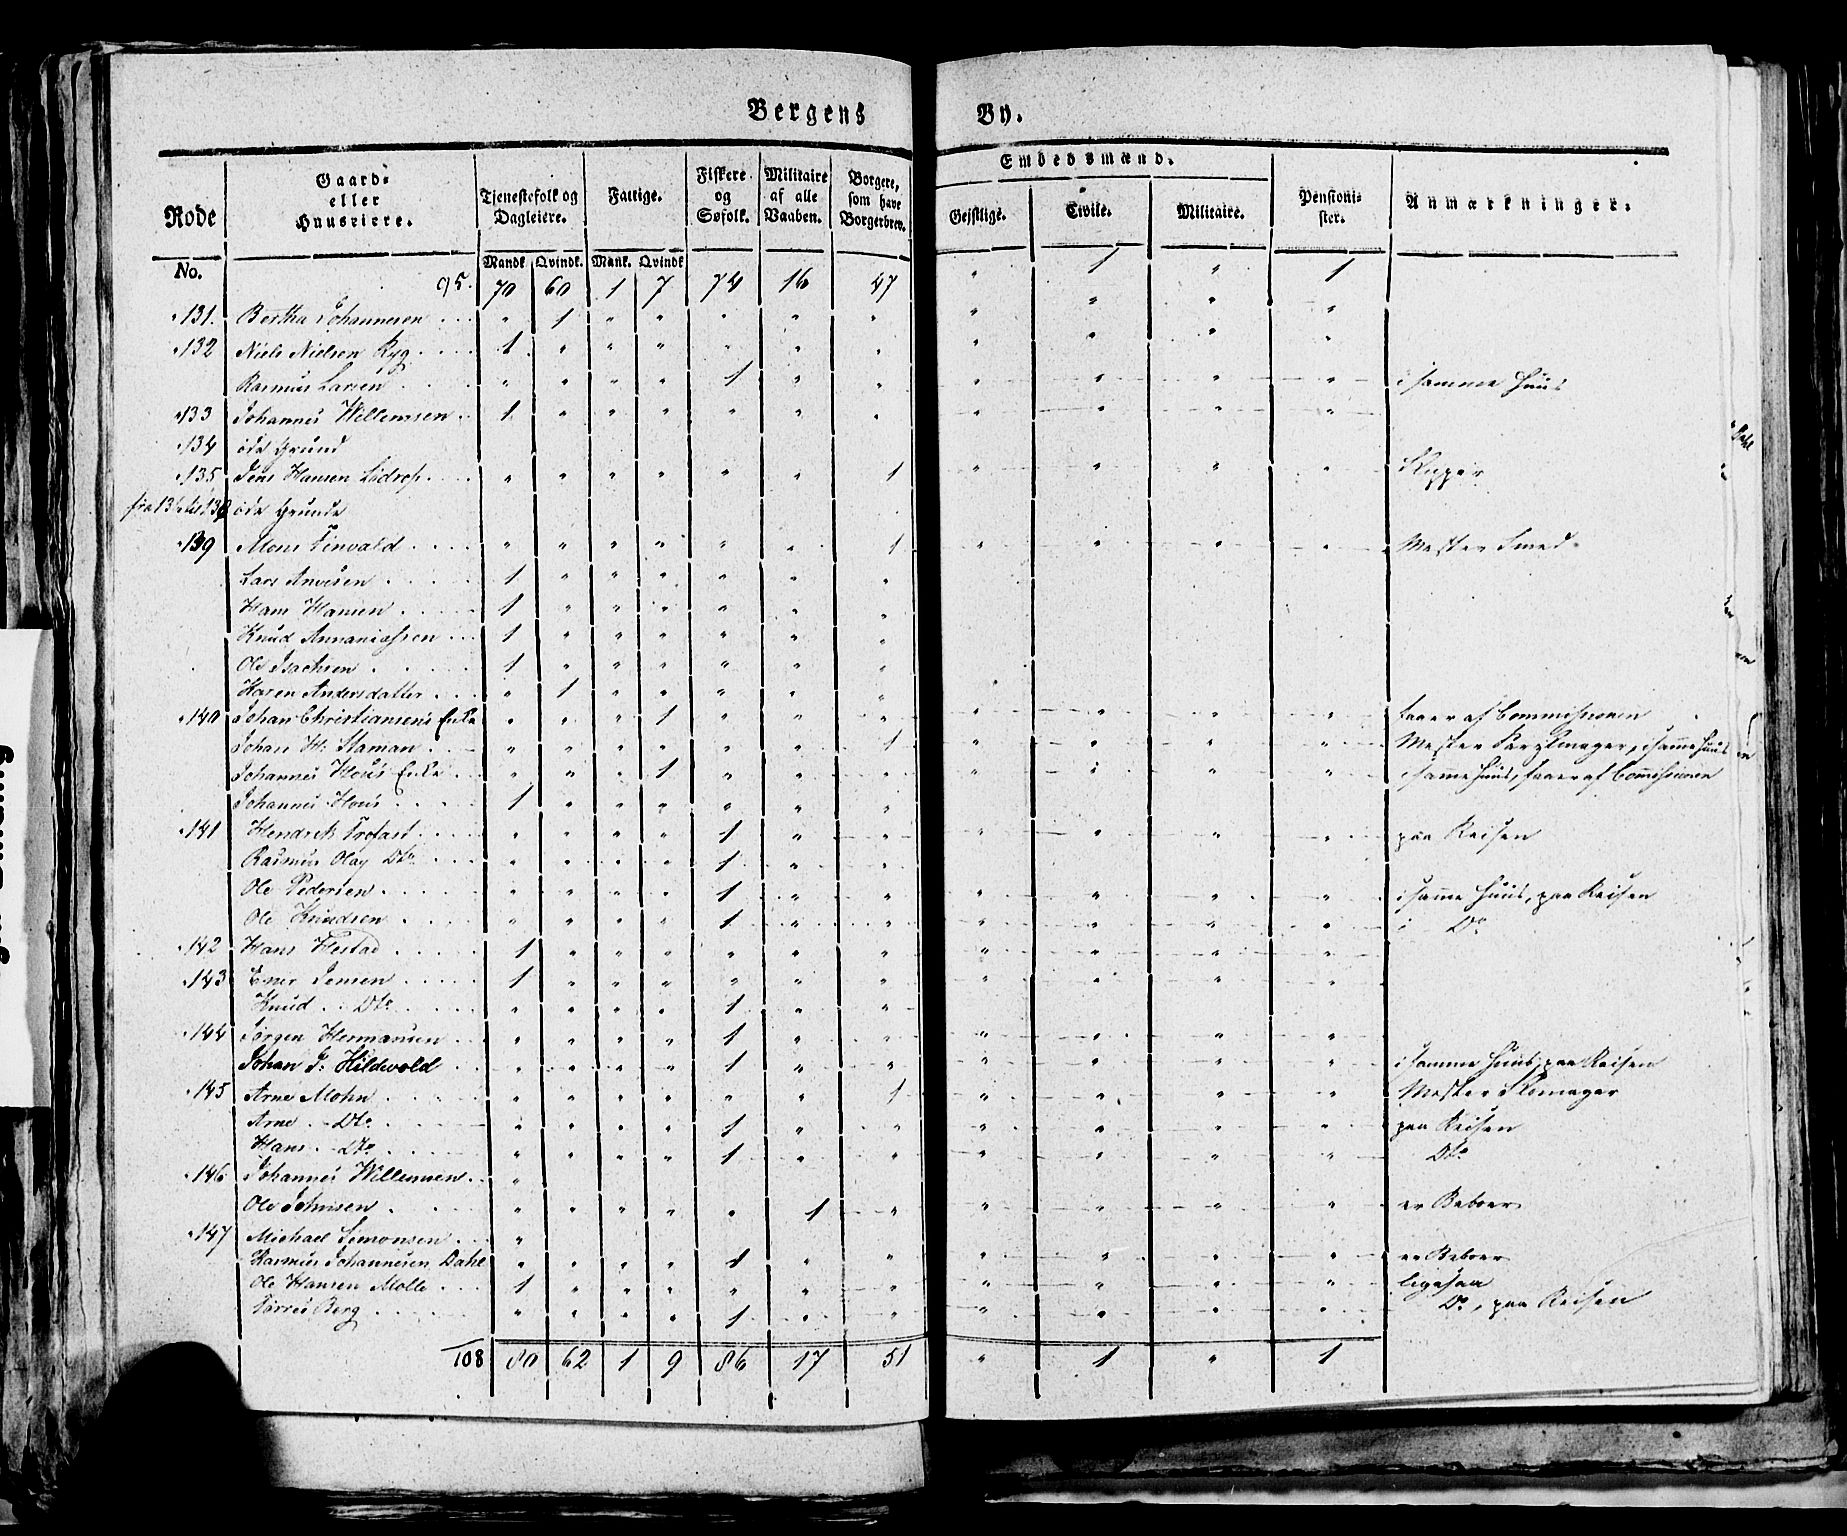 Bergens By.
Rode No.
Gaard- eller Huuseiere.
Tjenestefolk og Dagleiere.
Mandk. Qvindk.
Fattige.
Mank. Qvindk
Fiskere og Søfolk.
Militaire af alle Vaaben.
Borgere, som have Borgerbrev.
Embedsmænd.
Gejstlige. Civile. Militaire.
Pensionister.
Anmærkninger.
95. 70 60 1 7 74 16 47 " 1 " 1
131. Bertha Johannesen . . . " 1 " " " " " " " " "
132 Niels Nielsen Ryg . . . 1 " " " " " " " " " "
Rasmus Larsen . . . " " " " 1 " " " " " " i samme Huus
133 Johannes Willemsen . . 1 " " " " " " " " " "
134 øde Grund
135 Jens Hansen Lødrop . . . " " " " " " 1 " " " " Skipper
fra 136 til 138 øde Grunde
139 Mons Tinvald . . . " " " " " " 1 " " " " Mester Smed
Lars Andersen . . . 1 " " " " " "
Hans Hansen . . . 1 " " " " " "
Knud Annaniassen . . . 1 " " " " " "
Ole Isachsen . . . 1 " " " " " "
Karen Andersdatter . . . " 1 " " " " "
140 Johan Christiansens Enke " " " 1 " " " " " " " taaer af Commissionen
Johan H. Staman . . " " " " " " 1 " " " " Mester , i samme Huus
Johannes Hous Enke . " " " 1 " " " " " " " i samme Huus, faaer af Commissionen
Johannes Hous . . . 1 " " " " " "
141 Hendrik Trofast . . . " " " " 1 " " " " " " paa Reisen
Rasmus Olay Dto . . . " " " " 1 " "
Ole Pedersen . . . " " " " 1 " " " " " " i samme Huus, paa Reisen
Ole Knudsen . . . " " " " 1 " " " " " " i Do
142 Hans Hestad . . . 1 " " " " " " " " " "
143 Ener Jensen . . . 1 " " " " " " " " " "
Knud . . Dto " " " " 1 " "
144 Jørgen Hermansen . . " " " " 1 " " " " " "
Johan J. Hildevold " " " " 1 " " " " " " i samme Huus, paa Reisen
145 Arne Mohn . . . " " " " " " 1 " " " " Mester Skomager
Arne . . Dto . . . " " " " 1 " " " " " " paa Reisen
Hans . . Dto . . . " " " " 1 " " " " " " Dto
146 Johannes Willemsen . . "
Ole Johnsen . . . " " " " " 1 " " " " " er Beboer
147 Michael Simonsen . . "
Rasmus Johannesen Dahl " " " " 1 " " " " " " er Beboer
Ole Hansen Molle . . 1 " " " " " " " " " " ligesaa
Tørres Berg . . . " " " " 1 " " " " " " Do, paa Reisen
108 80 62 1 9 86 17 51 " 1 " 1